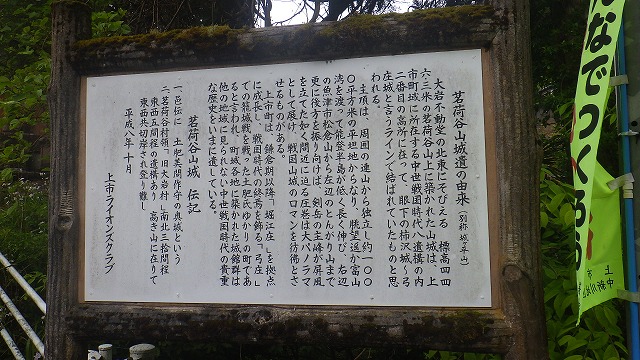 茗荷谷山城遺の由来(別称 城平山)
大岩不動堂の北東にそびえる 標高四四
六・三米の茗荷谷山上に築かれた山城は、上
市町域に所在する中世戦国時代へ遺構の内
二番目の高所に在って、眼下の柿沢城〜弓
庄城と言うラインで結ばれていたものと思
われる。
主頂は、周囲の連山から独立し約一〇〇
〇平方米の平坦地からなり、眺望遥か富山
湾を渡って能登半島が低く長く伸び、右辺
の魚津市松倉山から左辺のとんがり山まで
更に後方を振り向けば、剱岳の主峰が屏風
を立てた如く間近に迫る圧巻は大パノラマ
として展け、戦国山城のロマンを彷彿とさ
せるものがある。
上市町は、鎌倉期以降「堀江庄」を拠点
に成長し、戦国時代の終焉を飾る「弓庄」
での籠城戦を戦った土肥氏ゆかりの町であ
ると言われ、町域各地に築かれた城館群は
他の地域に見られない中世戦国時代の貴重
な歴史をいまに遺している。
茗荷谷山城 伝記
一、邑伝に 土肥美間作守の奥城という
二、茗荷谷村領「旧大岩村」南北三拾間程
東西五間程の遺構あり、高き山に在りて
東西共切岸され登り難し
平成八年十月
上市ライオンズクラブ
んなでつくろう
上市
中滝川